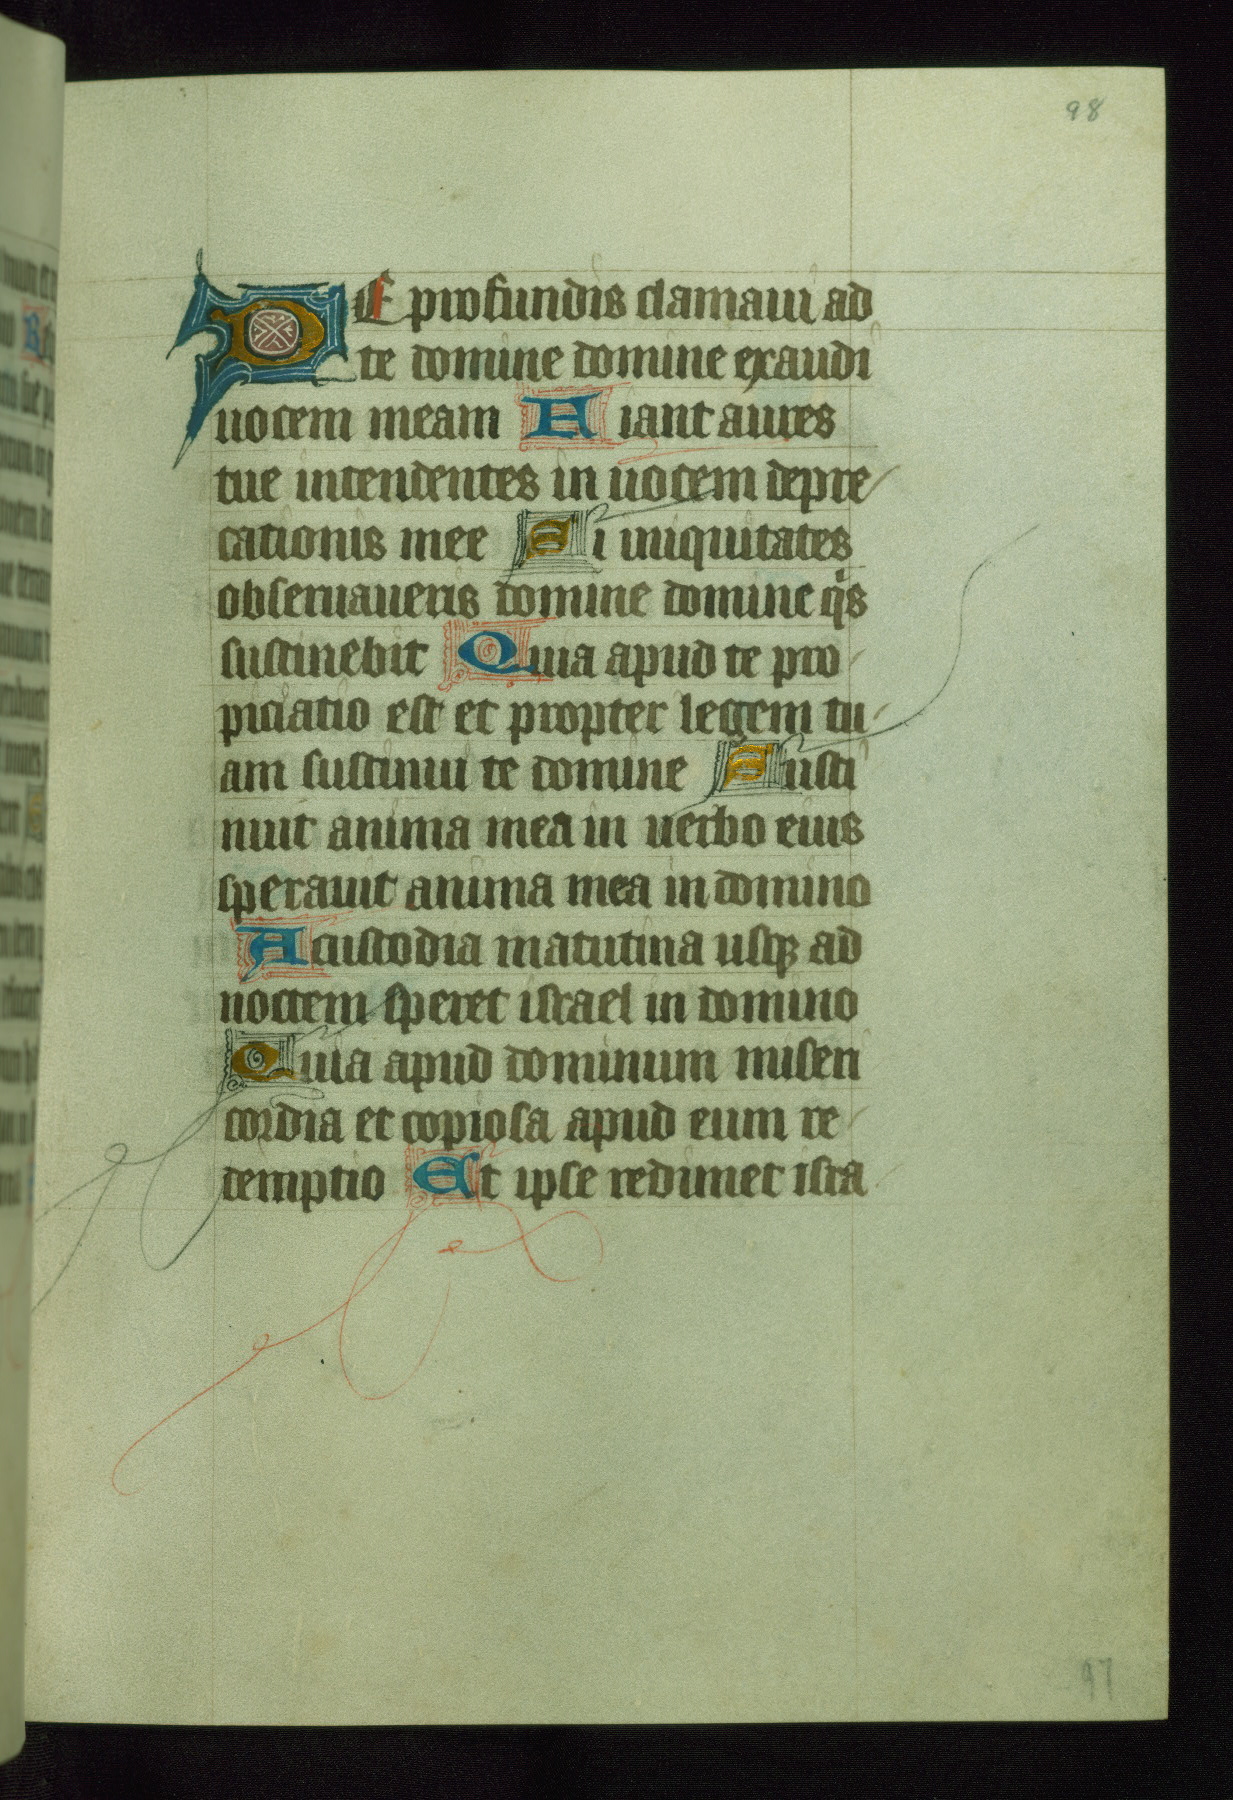 98
DE profundis clamaui ad
te domine domine exaudi
uocem meam Fiant aures
tue intendentes in uocem depre
cationis mee Si iniquitates
obseruaueris domine domine qis
sustinebit Quia apud te pro
piciatio est et propter legem tu
am sustinui te domine Susti
nuit anima mea in uerbo eius
sperauit anima mea in domino
A custodia matutina usqꝫ ad
noctem speret israel in domino
Quia apud dominum miseri
cordia et copiosa apud eum re
demptio Et ipse redimet isra
97